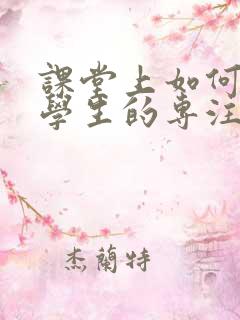 課堂上如何
學生的專注
杰蘭特